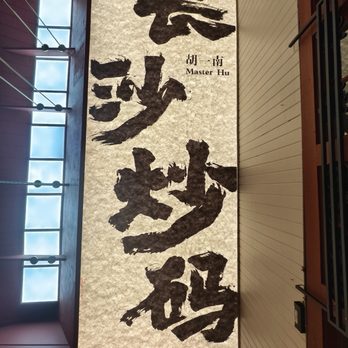 长沙炒码
胡一南
Master Hu